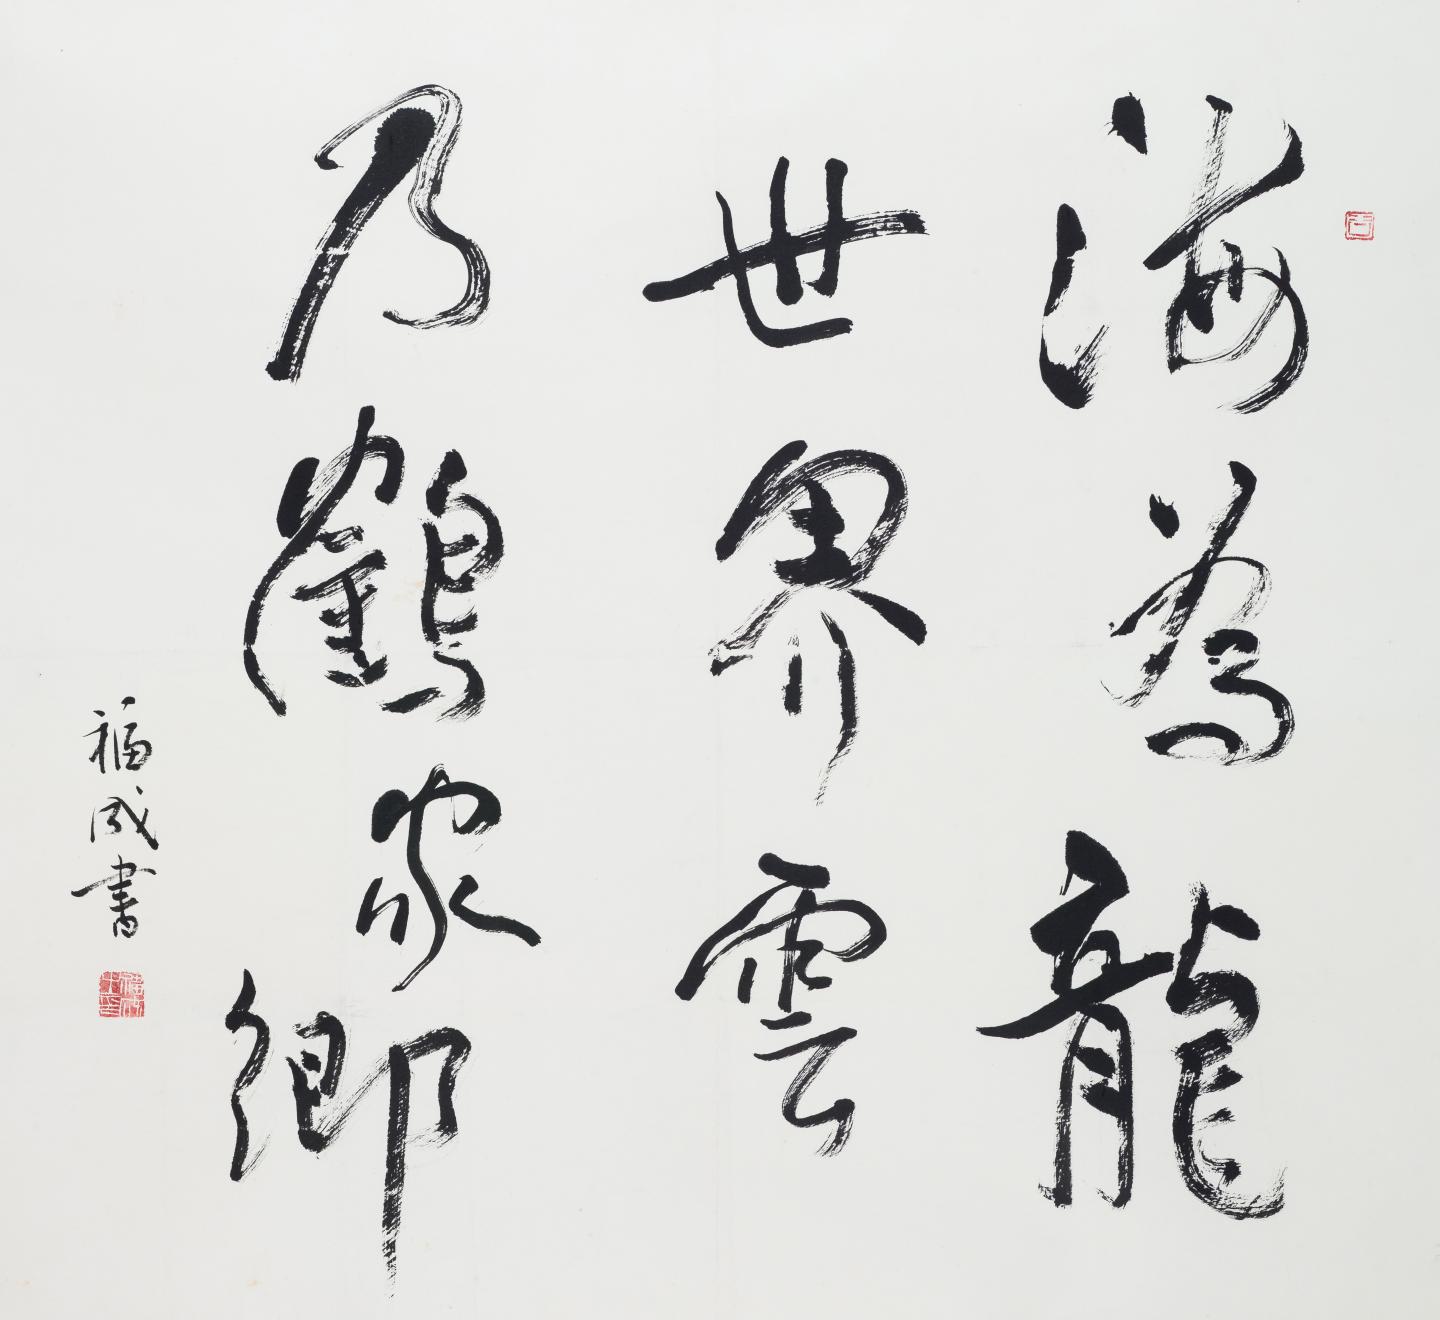 海為龍
世界雲
乃鶴家鄉
福成書